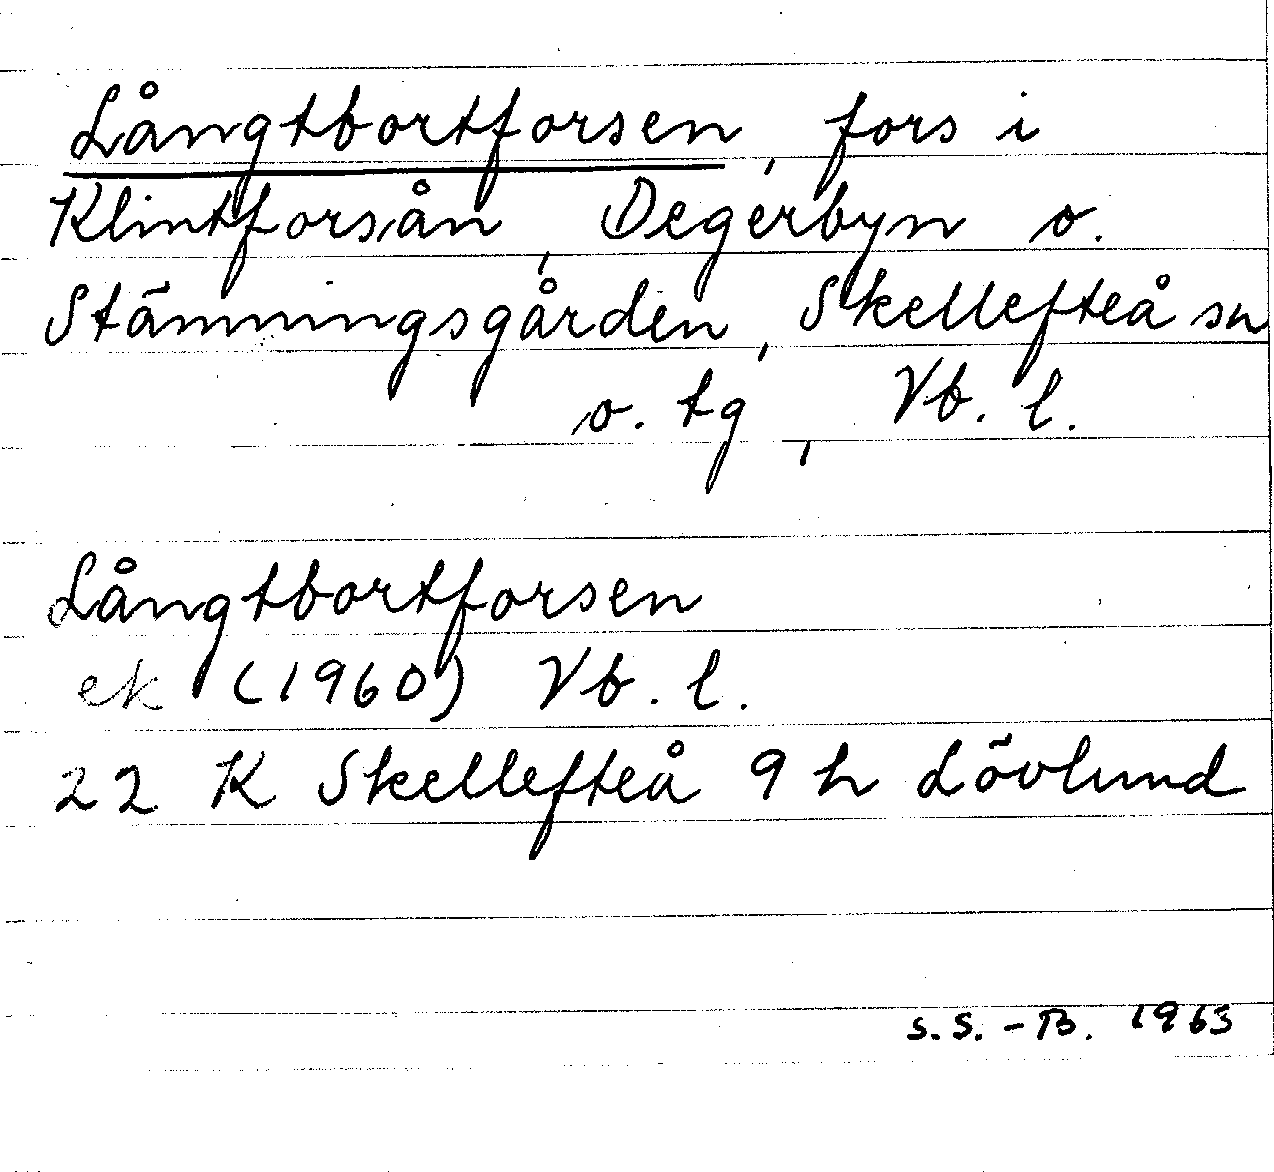 Långtbortforsen, fors i
Klintforsån, Degerbyn o.
Stämningsgården, Skellefteå sn
o. tg, Vb. l.
Långtbortforsen
ek (1960) Vb. l.
22 K Skellefteå 9 h Lövlund
S.S.-B. 1963